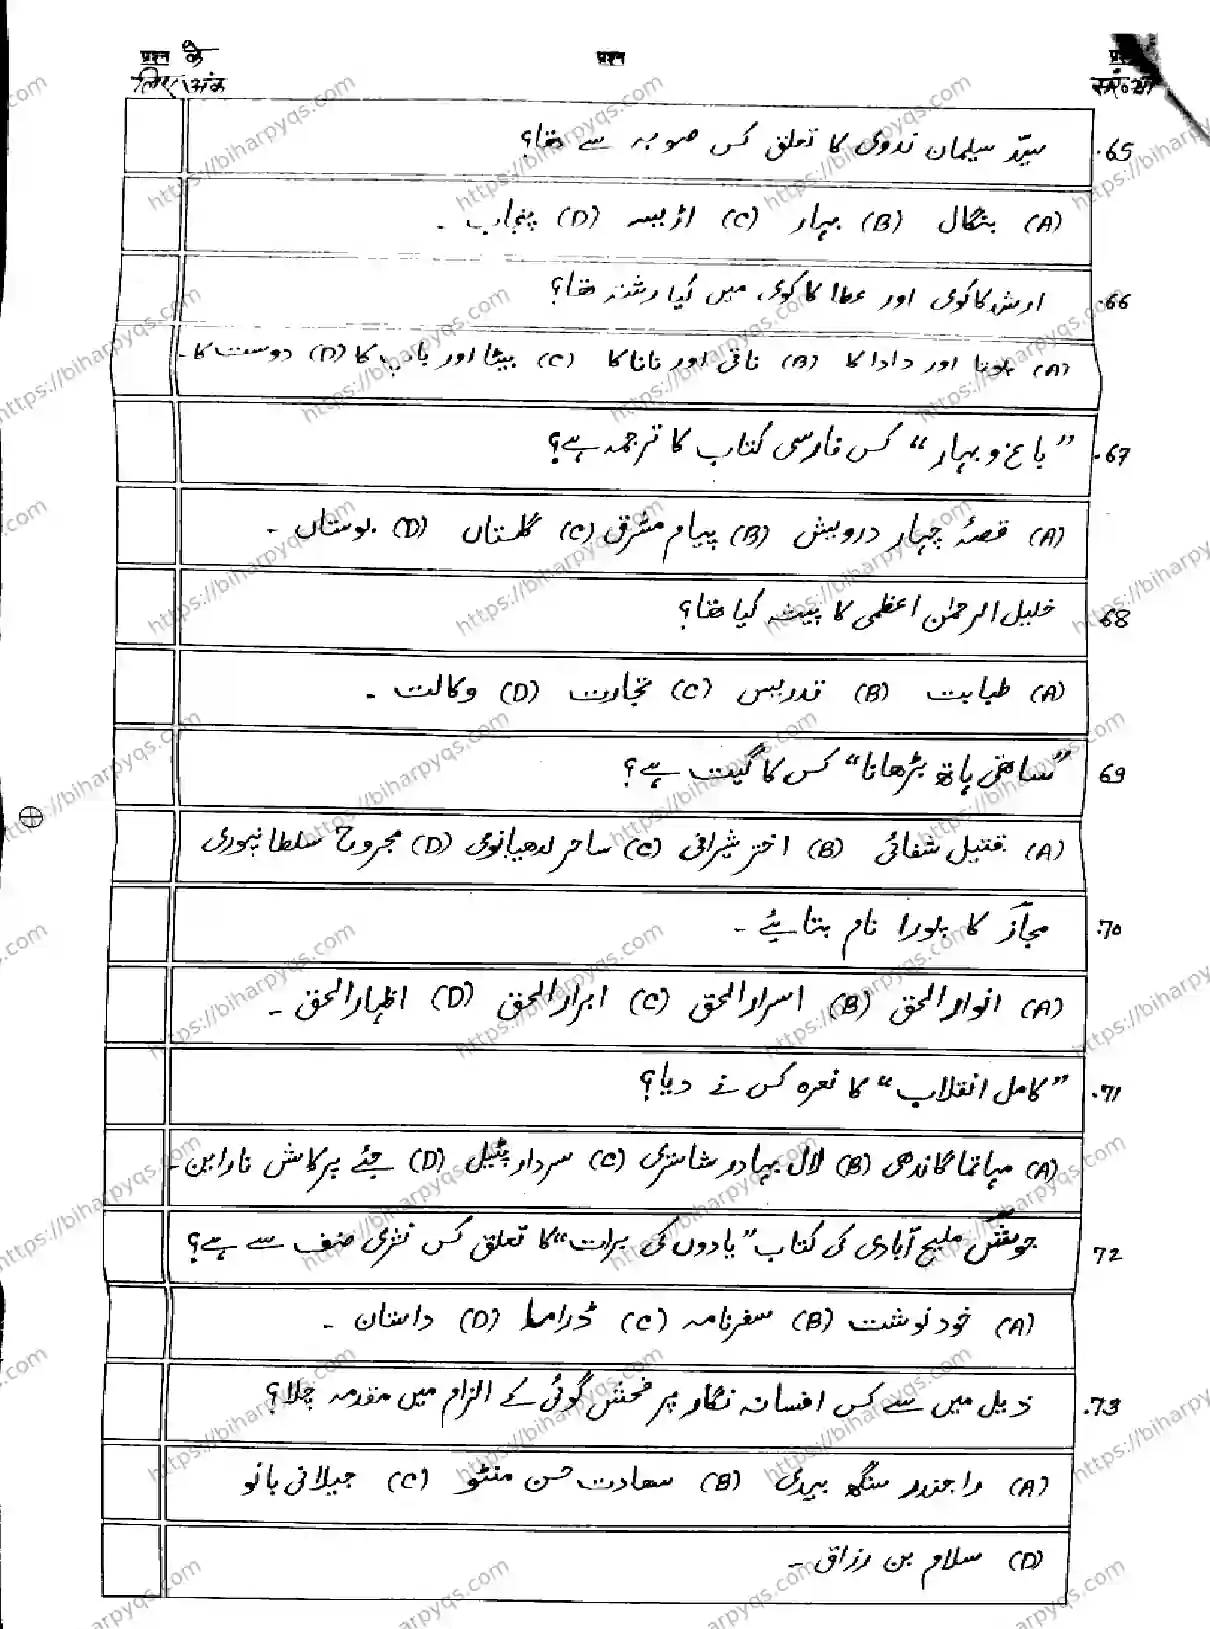 प्रश्न के
लिए अंक
प्रश्न
65. سیّد سلیمان ندوی کا تعلق کس صوبہ سے تھا؟
(A) بنگال (B) بہار (C) اڑیسہ (D) پنجاب ۔
66. ارش کاکوی اور عطا کاکوی میں کیا رشتہ تھا؟
(A) پوتا اور دادا کا (B) ناتی اور نانا کا (C) بیٹا اور باپ کا (D) دوست کا۔
67. ”باغ و بہار“ کس فارسی کتاب کا ترجمہ ہے؟
(A) قصۂ چہار درویش (B) پیام مشرق (C) گلستاں (D) بوستاں ۔
68. خلیل الرحمٰن اعظمی کا پیشہ کیا تھا؟
(A) طبابت (B) تدریس (C) تجارت (D) وکالت ۔
69. ”ساتھی ہاتھ بڑھانا“ کس کا گیت ہے؟
(A) قتیل شفائی (B) اختر شیرانی (C) ساحر لدھیانوی (D) مجروح سلطانپوری
70. مجازؔ کا پورا نام بتائیے ۔
(A) انوارالحق (B) اسرارالحق (C) ابرارالحق (D) اظہارالحق ۔
71. ”کامل انقلاب“ کا نعرہ کس نے دیا؟
(A) مہاتما گاندھی (B) لال بہادر شاستری (C) سردار پٹیل (D) جئے پرکاش نارائن ۔
72 جوشؔ ملیح آبادی کی کتاب ”یادوں کی برات“ کا تعلق کس نثری صنف سے ہے؟
(A) خودنوشت (B) سفرنامہ (C) ڈراما (D) داستان ۔
73. ذیل میں سے کس افسانہ نگار پر فحش گوئی کے الزام میں مقدمہ چلا؟
(A) راجندر سنگھ بیدی (B) سعادت حسن منٹو (C) جیلانی بانو
(D) سلام بن رزاق ۔
https://biharpyqs.com